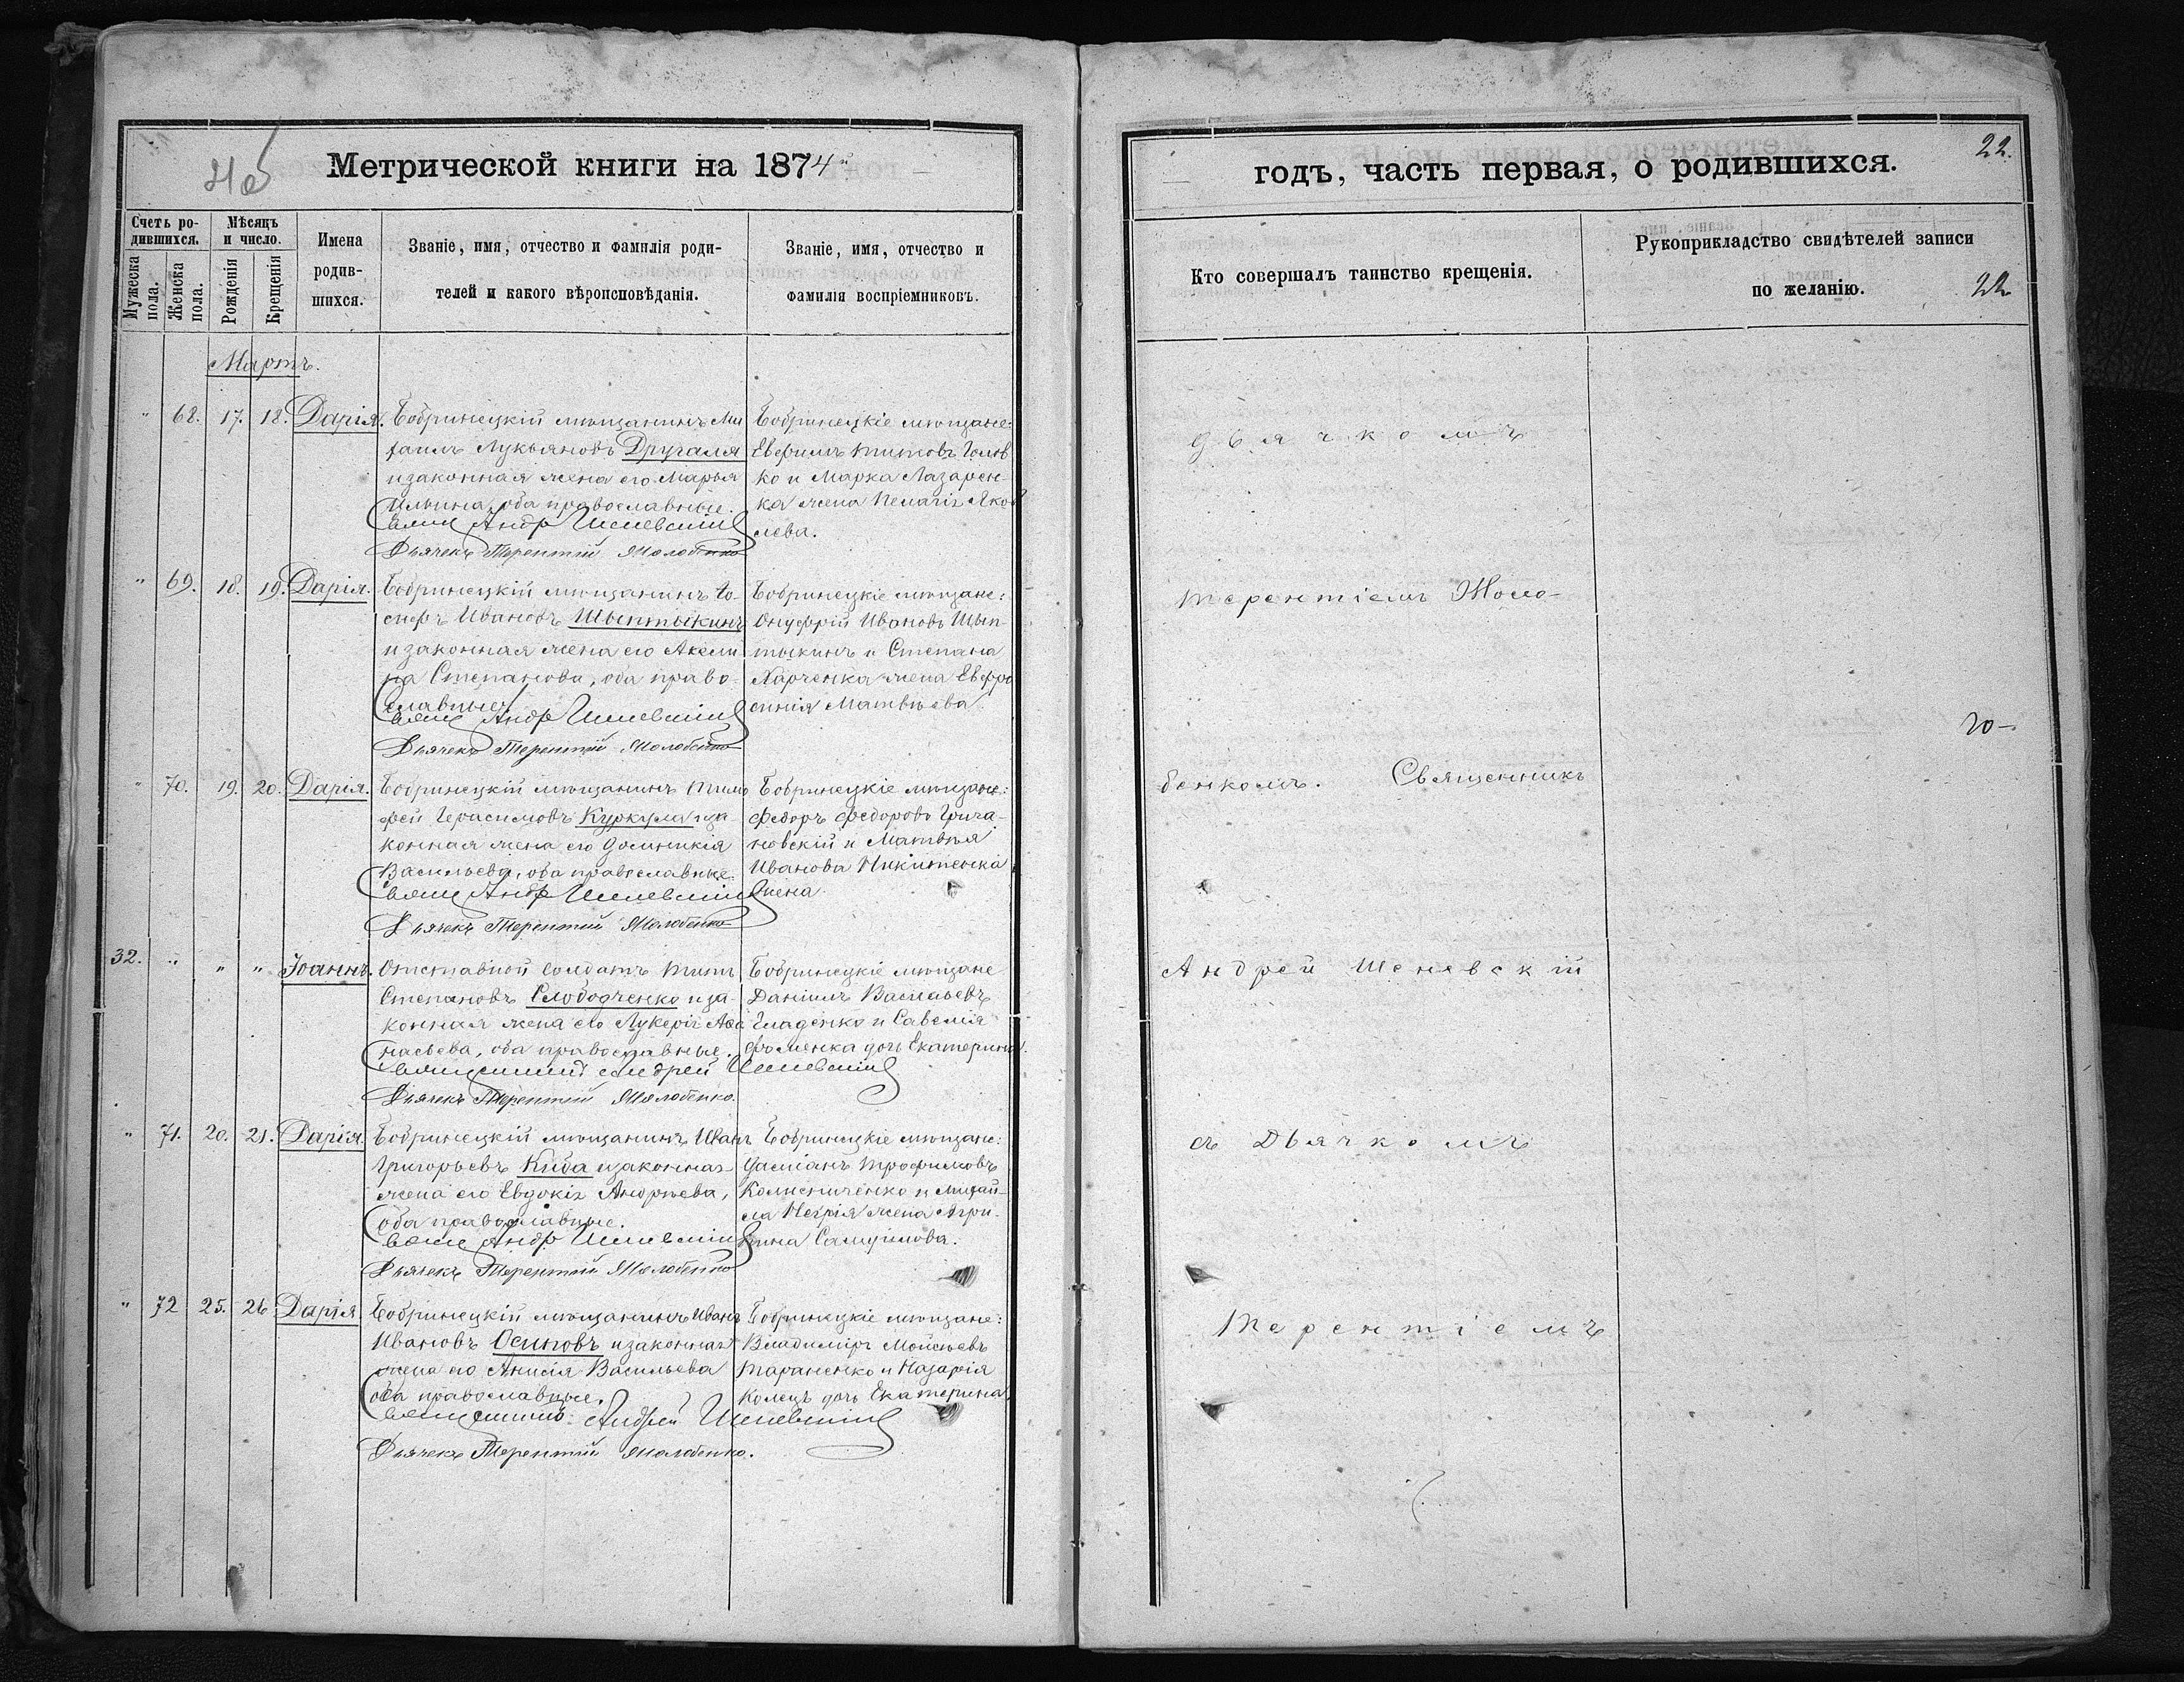 Метрической книги на 1874
Счетъ ро-
дившихся.
Мѣсяцъ
и число.
Имена
родив-
шихся.
Званіе, имя, отчество и фамилія роди-
телей и какого вѣроисповѣданія.
Званіе, имя, отчество и
фамилія воспріемниковъ.
Мужеска
пола.
Женска
пола.
Рожденія
Крещенія
Мартъ.
" 68. 17. 18. Дарія.
Бобринецкій мѣщанинъ Ми
хаилъ Лукьяновъ Другаля
и законная жена его Марья
Ильина, оба православные.
Андр Шеневскій
Дьячекъ Терентій Жолобенко
Бобринецкіе мѣщане:
Евфимъ Титовъ Голов
ко и Марка Лазарен-
ка жена Пелагія Яков
лева.
" 69. 18. 19. Дарія.
Бобринецкій мѣщанинъ Іо-
сифъ Ивановъ Шыптыкинъ
и законная жена его Акели
на Степанова, оба право-
славные
Андр Шеневскій
Дьячекъ Терентій Жолобенко
Бобринецкіе мѣщане:
Онуфрій Ивановъ Шып-
тыкинъ и Степана
Харченка жена Евфро
синія Матвѣева
" 70. 19. 20. Дарія.
Бобринецкій мѣщанинъ Тимо
фей Герасимовъ Куркула и за-
конная жена его Домникія
Васильева, оба православные.
Андр Шеневскій
Дьячекъ Терентій Жолобенко
Бобринецкіе мѣщане:
Федоръ Федоровъ Грича-
новскій и Матвѣя
Иванова Никитенка
жена
32. " " " Іоаннъ.
Отставной солдатъ Титъ
Степановъ Слободченко и за-
конная жена его Лукерія Афа
насьева, оба православные.
Священникъ Андрей Шеневскій
Дьячекъ Терентій Жолобенко.
Бобринецкіе мѣщане
Даніилъ Васильевъ
Гладенко и Савелія
Фоменка дочь Екатерина.
" 71. 20. 21. Дарія.
Бобринецкій мѣщанинъ Иванъ
Григорьевъ Киба и законная
жена его Евдокія Андреева,
оба православные.
Андр Шеневскій
Дьячекъ Терентій Жолобенко
Бобринецкіе мѣщане:
Даміанъ Трофимовъ
Колисниченко и Михай-
ла Негрія жена Агри-
пина Самуилова.
" 72 25. 26 Дарія
Бобринецкій мѣщанинъ Иванъ
Ивановъ Осиповъ и законная
жена его Анисія Васильева
оба православные.
Священникъ Андрей Шеневскій
Дьячекъ Терентій Жолобенко.
Бобринецкіе мѣщане:
Владиміръ Мойсѣевъ
Тараненко и Назарія
Колецъ дочь Екатерина
годъ, часть первая, о родившихся.
22.
Кто совершалъ таинство крещенія.
Рукоприкладство свидѣтелей записи
по желанію.
22
дьячкомъ
Терентіемъ Жоло-
20-
бенкомъ. Священникъ
Андрей Шеневскій
съ Дьячкомъ
Терентіемъ